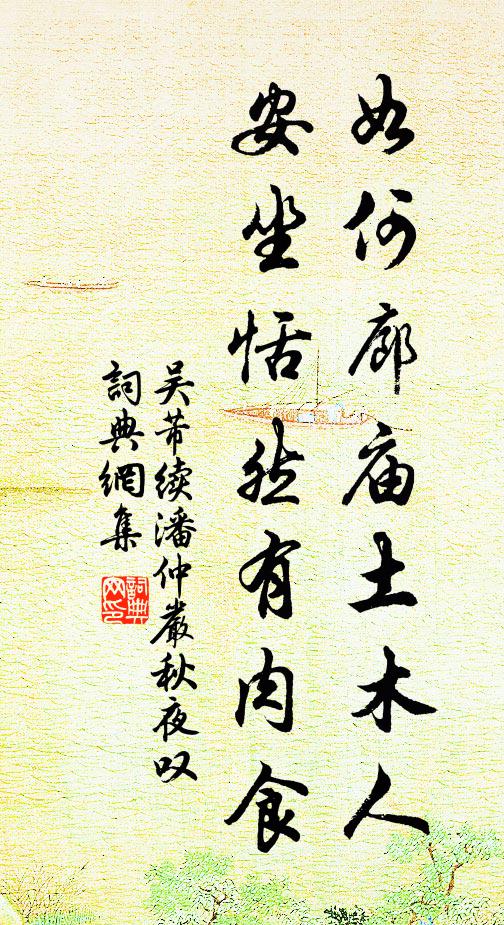 如何廊庙土木人
安坐恬然有肉食
吴芾续潘仲严秋夜叹
詞典網集
詞典網印